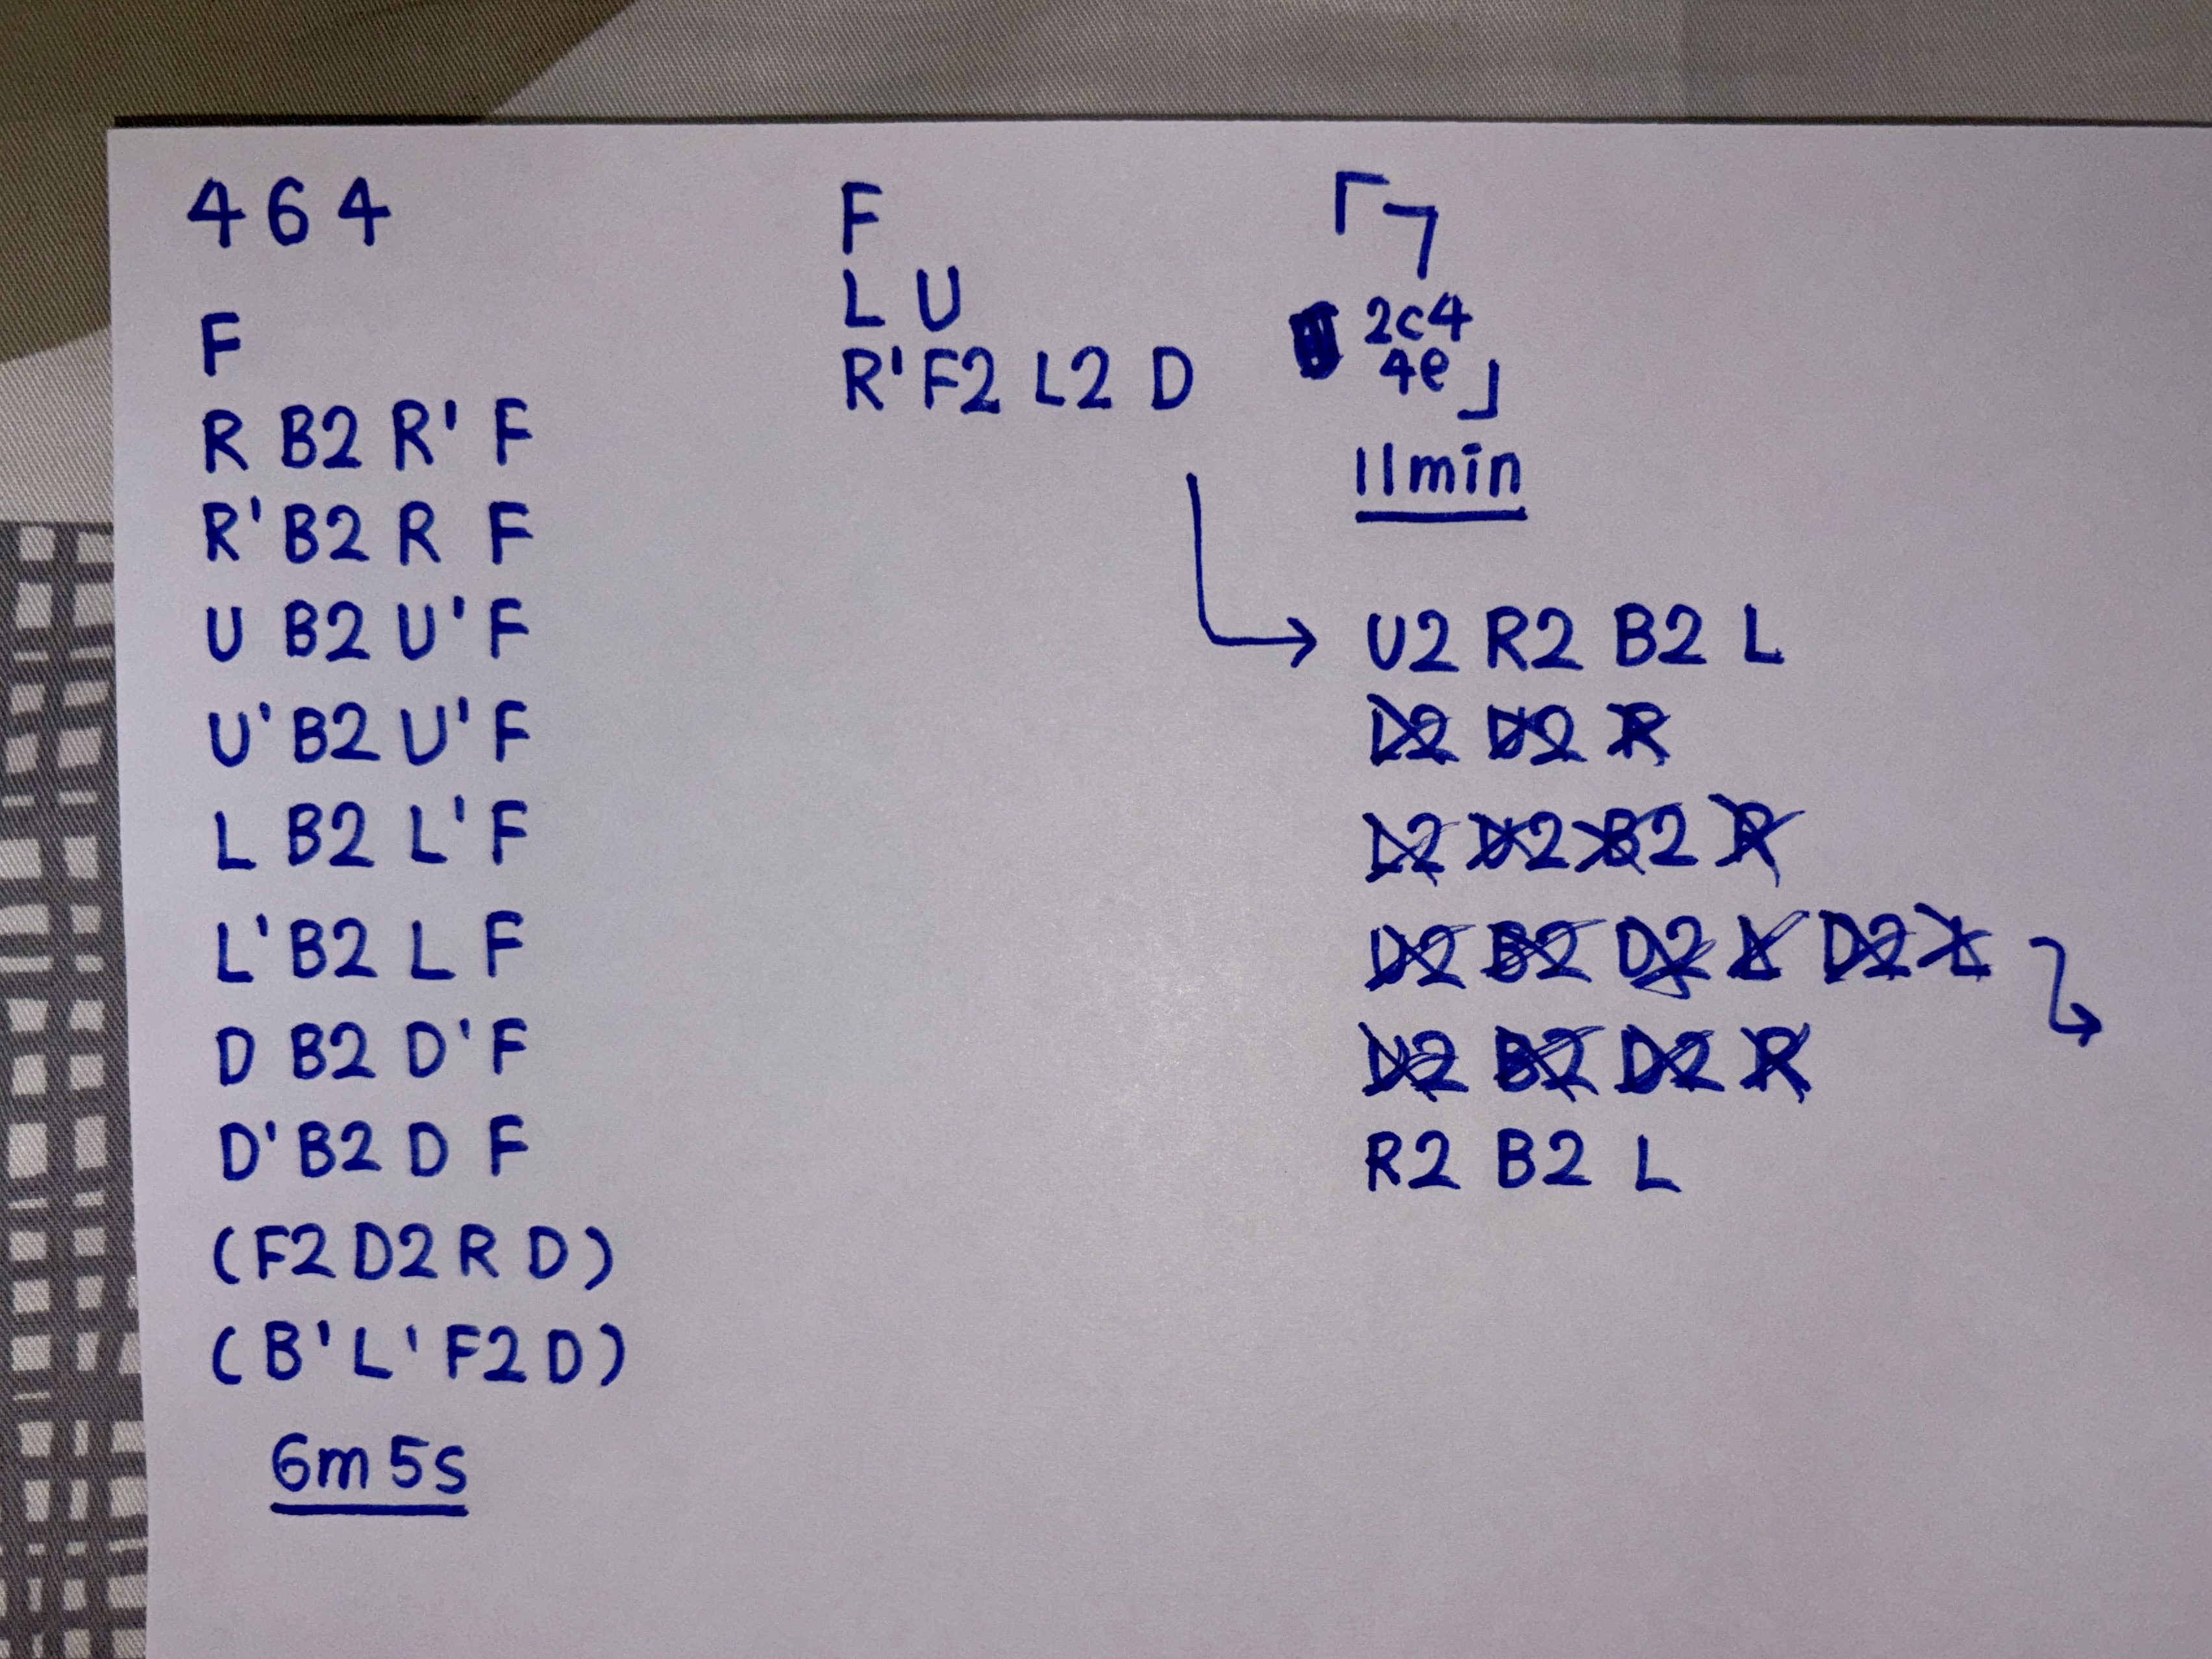 464
F
R B2 R' F
R' B2 R F
U B2 U' F
U' B2 U' F
L B2 L' F
L' B2 L F
D B2 D' F
D' B2 D F
(F2 D2 R D)
(B' L' F2 D)
6m 5s
F
L U
R' F2 L2 D
2c4
4e
11min
U2 R2 B2 L
R2 B2 L